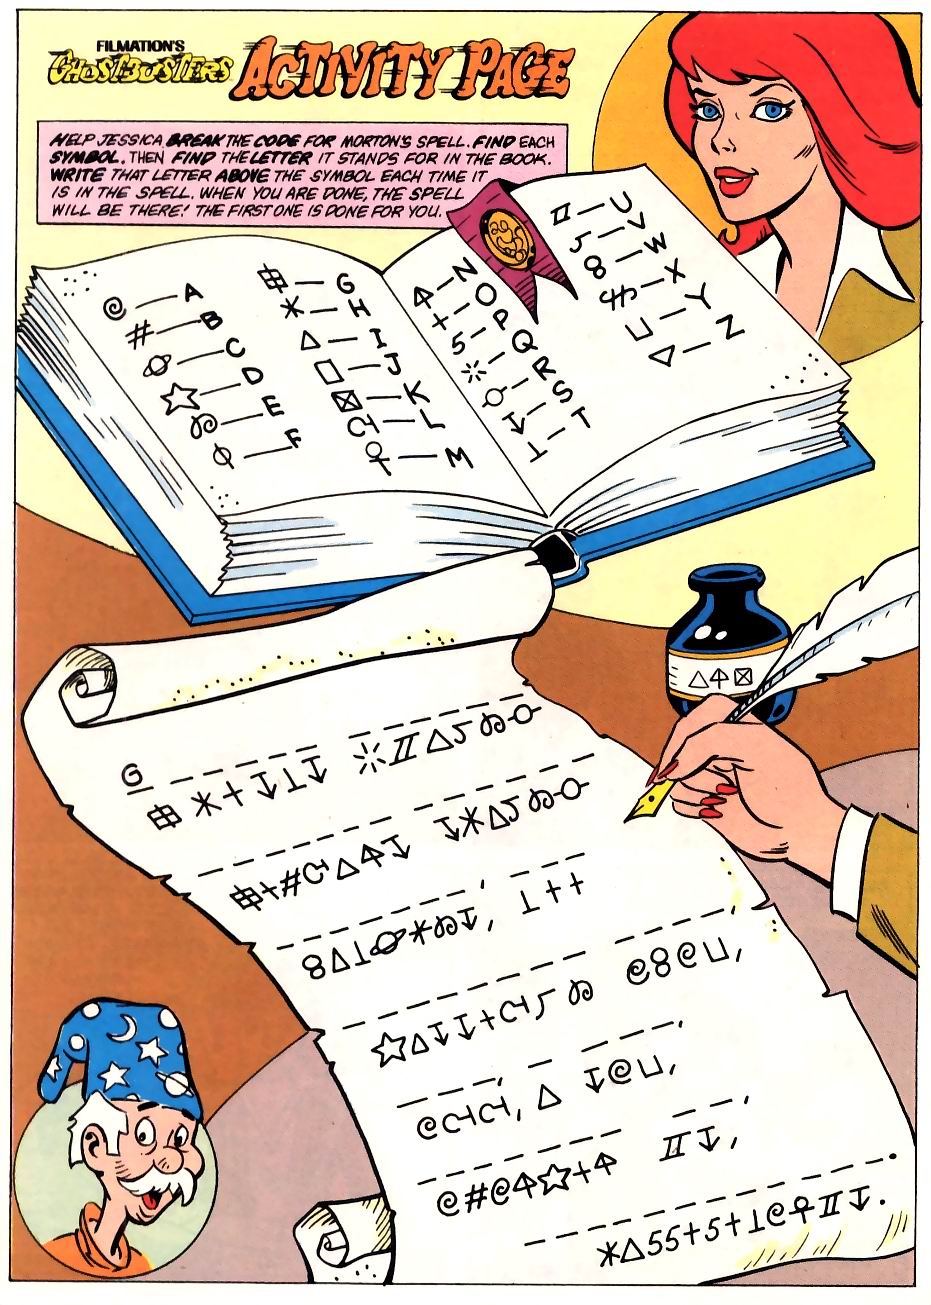 FILMATION'S
GHOSTBUSTERS ACTIVITY PAGE
HELP JESSICA BREAK THE CODE FOR MORTON'S SPELL. FIND EACH
SYMBOL. THEN FIND THE LETTER IT STANDS FOR IN THE BOOK.
WRITE THAT LETTER ABOVE THE SYMBOL EACH TIME IT
IS IN THE SPELL. WHEN YOU ARE DONE, THE SPELL
WILL BE THERE! THE FIRST ONE IS DONE FOR YOU.
A
B
C
D
E
F
G
H
I
J
K
L
M
N
O
P
Q
R
S
T
U
V
W
X
Y
Z
G